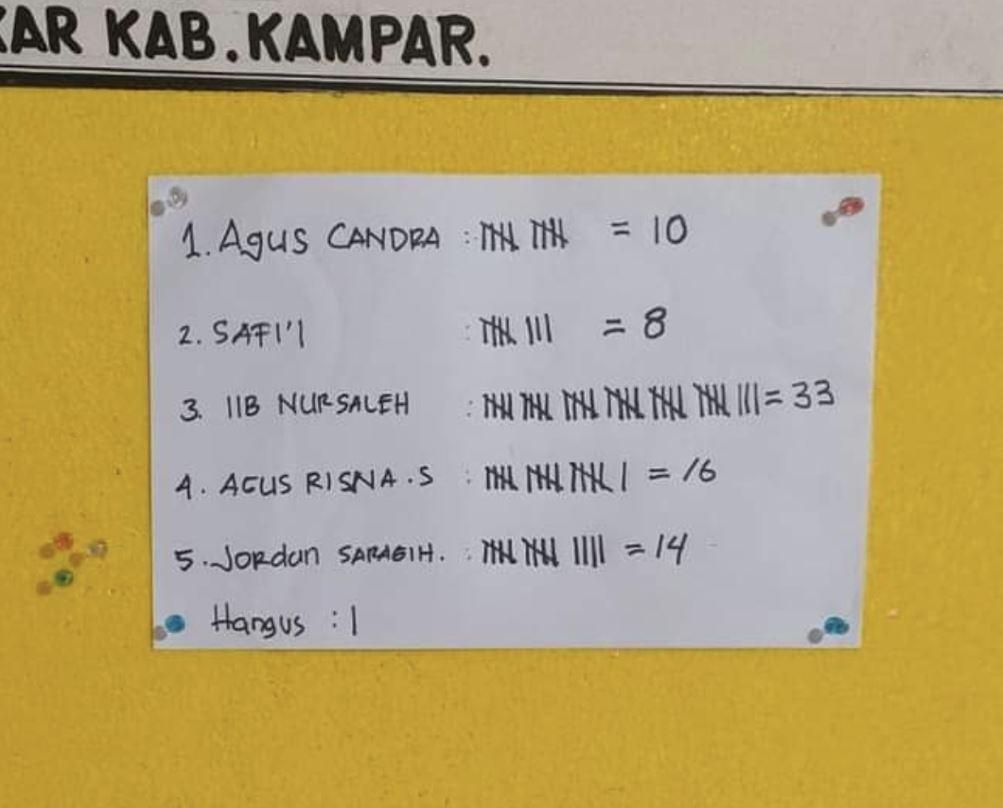 KAR KAB. KAMPAR.
1. Agus CANDRA : 𝍸 𝍸 = 10
2. SAFI'I : 𝍸 III = 8
3. IIB NURSALEH : 𝍸 𝍸 𝍸 𝍸 𝍸 𝍸 III = 33
4. AGUS RISNA.S : 𝍸 𝍸 𝍸 I = 16
5. Jordan SARAGIH. : 𝍸 𝍸 IIII = 14
Hangus : I